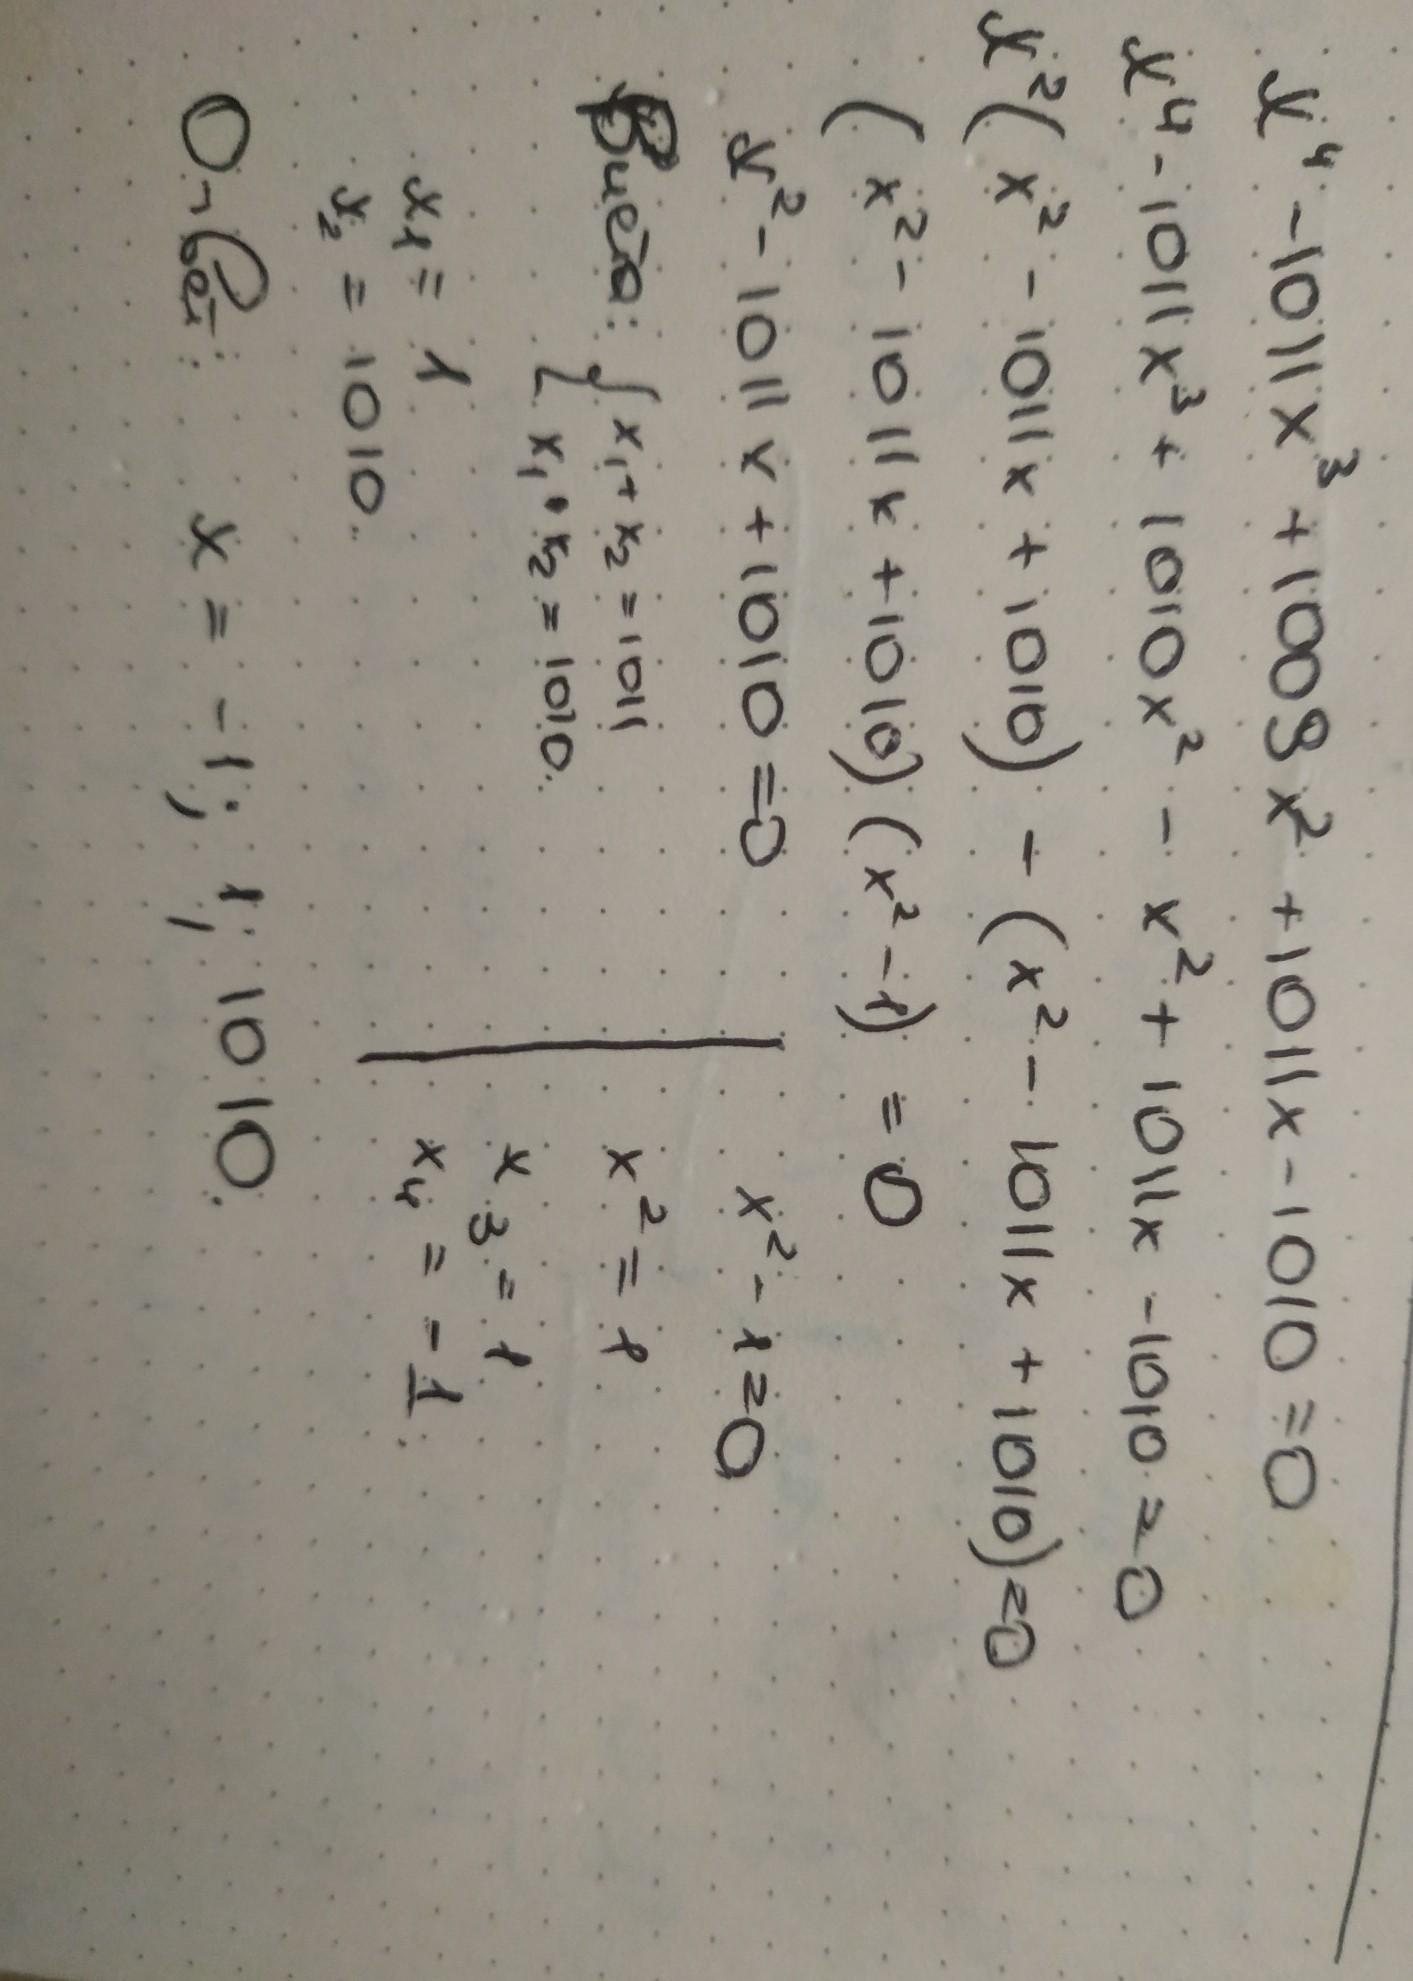 x⁴ - 1011x³ + 1009x² + 1011x - 1010 = 0
x⁴ - 1011x³ + 1010x² - x² + 1011x - 1010 = 0
x²(x² - 1011x + 1010) - (x² - 1011x + 1010) = 0
(x² - 1011x + 1010)(x² - 1) = 0
x² - 1011x + 1010 = 0
Виета: { x₁ + x₂ = 1011
x₁ • x₂ = 1010.
x₁ = 1
x₂ = 1010.
x² - 1 = 0
x² = 1
x₃ = 1
x₄ = -1.
Ответ: x = -1; 1; 1010.